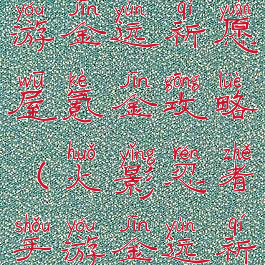 yóu jīn yùn qí yuàn
游金运祈愿
wū kè jīn gōng lüè
屋氪金攻略
huǒ yǐng rěn zhě
（火影忍者
shǒu yóu jīn yùn qí
手游金运祈